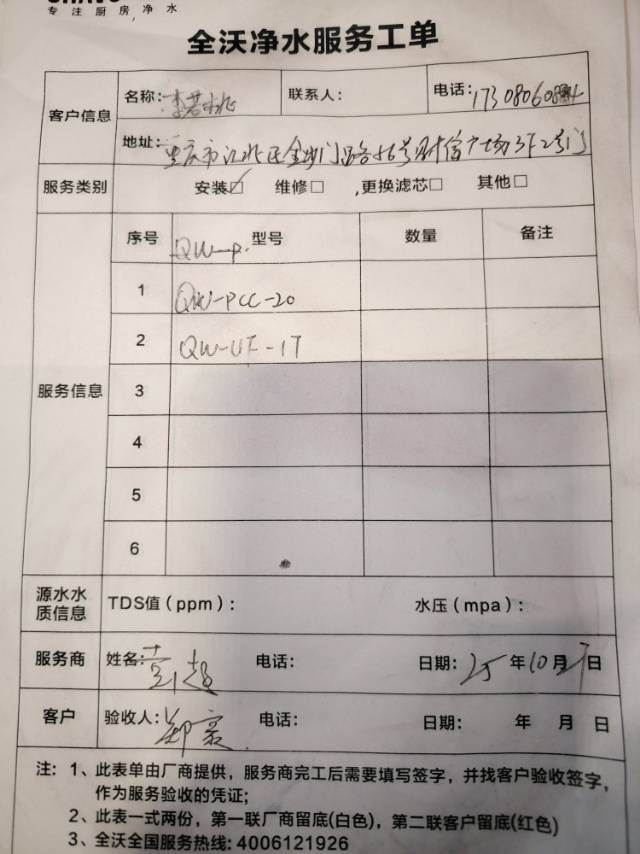 专注厨房净水
全沃净水服务工单
客户信息
名称: 李若桃
联系人:
电话: 173080608
地址: 重庆市江北区金沙门路56号财信广场3F2号门
服务类别 安装☑ 维修□ 更换滤芯□ 其他□
服务信息
序号 型号 数量 备注
QW-P.
1 QW-PCC-20
2 QW-UF-1T
3
4
5
6
源水水质信息 TDS值(ppm): 水压(mpa):
服务商 姓名: 超 电话: 日期: 25年10月27日
客户 验收人: 郑豪 电话: 日期: 年 月 日
注: 1、此表单由厂商提供，服务商完工后需要填写签字，并找客户验收签字，
作为服务验收的凭证;
2、此表一式两份，第一联厂商留底(白色)，第二联客户留底(红色)
3、全沃全国服务热线: 4006121926